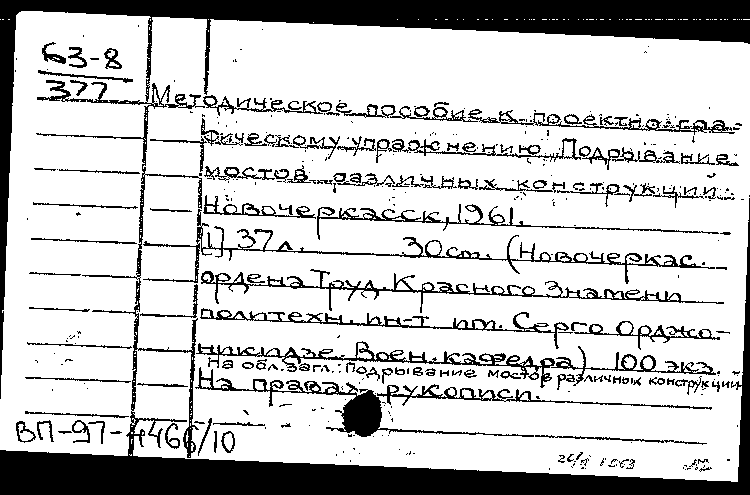 63-8
377
Методическое пособие к проектно-гра-
фическому упражнению "Подрывание
мостов различных конструкций".
Новочеркасск, 1961.
[1], 37 л. 30 см. (Новочеркас.
ордена Труд. Красного Знамени
политехн. ин-т им. Серго Орджо-
никидзе. Воен. кафедра) 100 экз.
На обл. загл.: Подрывание мостов различных конструкций
На правах рукописи.
ВП-97-4466/10